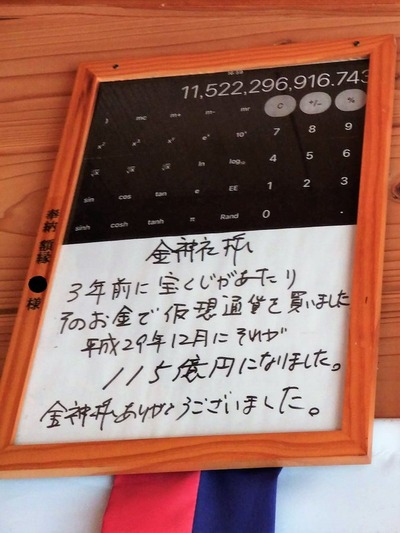 11,522,296,916.743
) mc m+ m- mr C +/- %
x² x³ xʸ eˣ 10ˣ 7 8 9
ln log₁₀ 4 5 6
sin cos tan e EE 1 2 3
sinh cosh tanh π Rand 0 .
奉納 額縁
様
金神社様
3年前に宝くじがあたり
そのお金で仮想通貨を買いました
平成29年12月にそれが
115億円になりました。
金神様ありがとうございました。